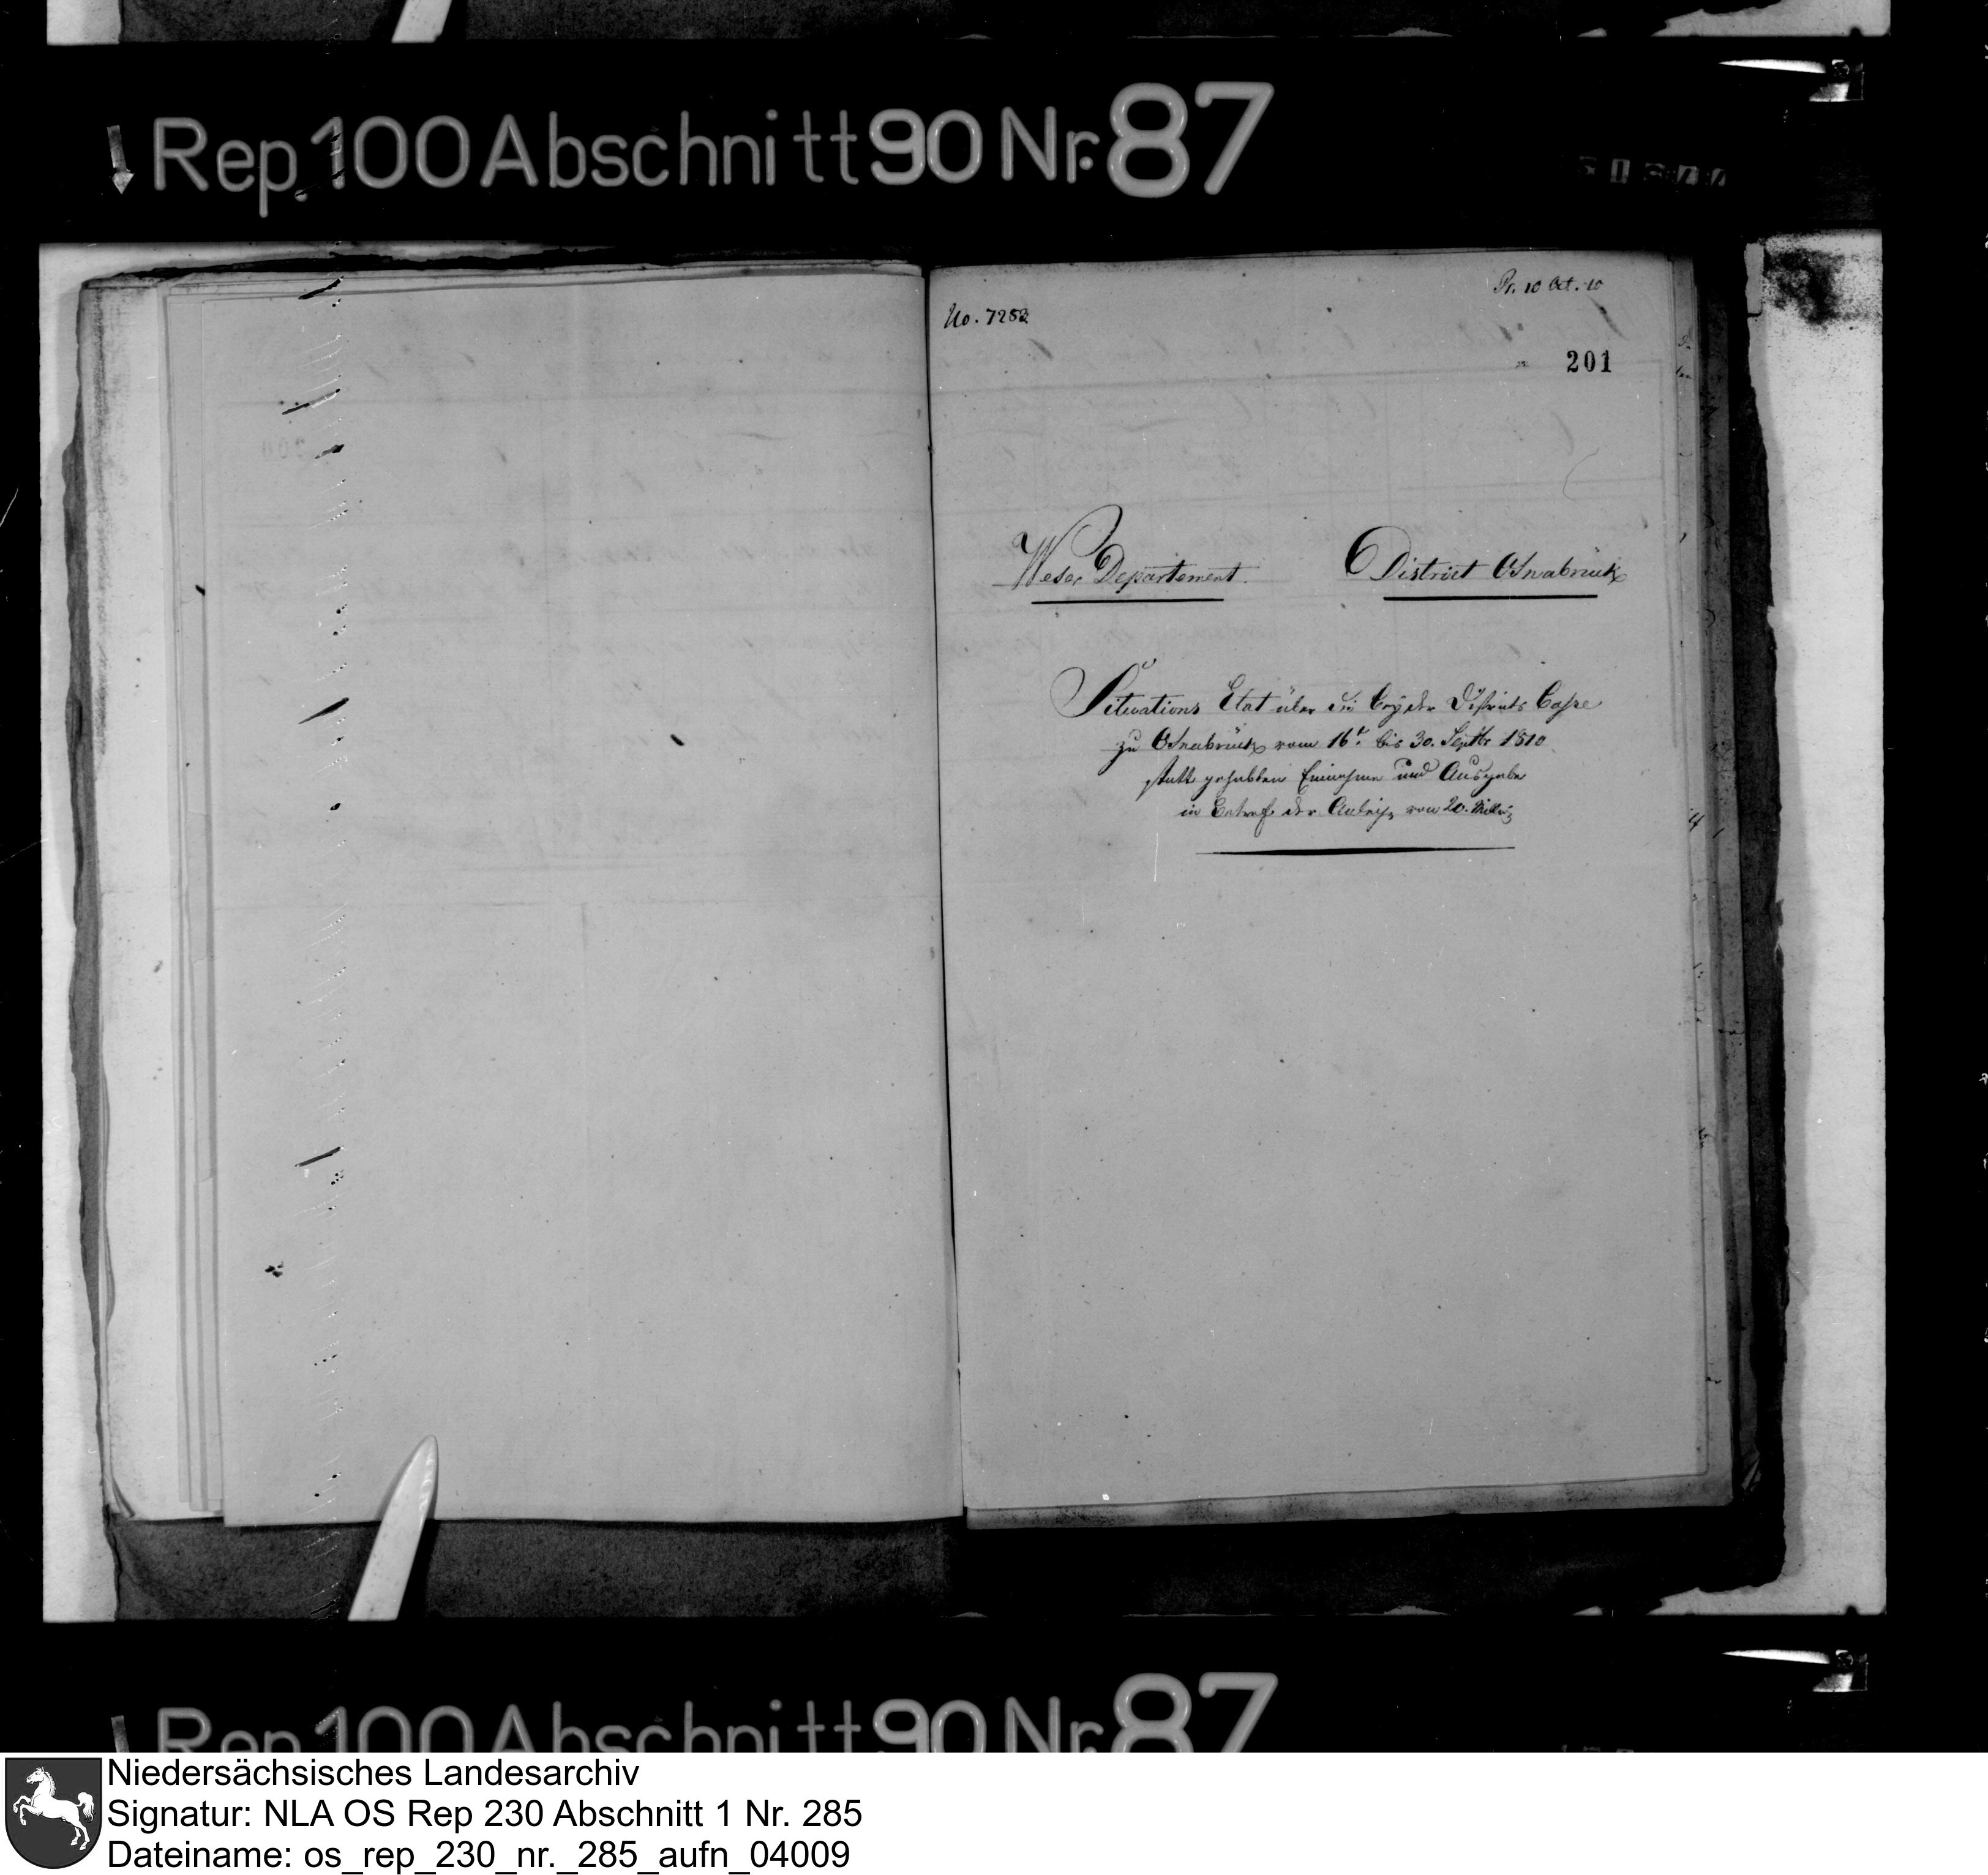 Rep. 100 Abschnitt 90 Nr. 87
No. 7283
Pr. 10 Oct. 10
201
Weser Departement.
District Osnabrück
Situations Etat über die bey der Districts Casse
zu Osnabrück vom 16t. bis 30. Septbr 1810
statt gehabten Einnahme und Ausgabe
in Betref der Anleihe von 20. Million
Rep. 100 Abschnitt 90 Nr. 87
Niedersächsisches Landesarchiv
Signatur: NLA OS Rep 230 Abschnitt 1 Nr. 285
Dateiname: os_rep_230_nr._285_aufn_04009